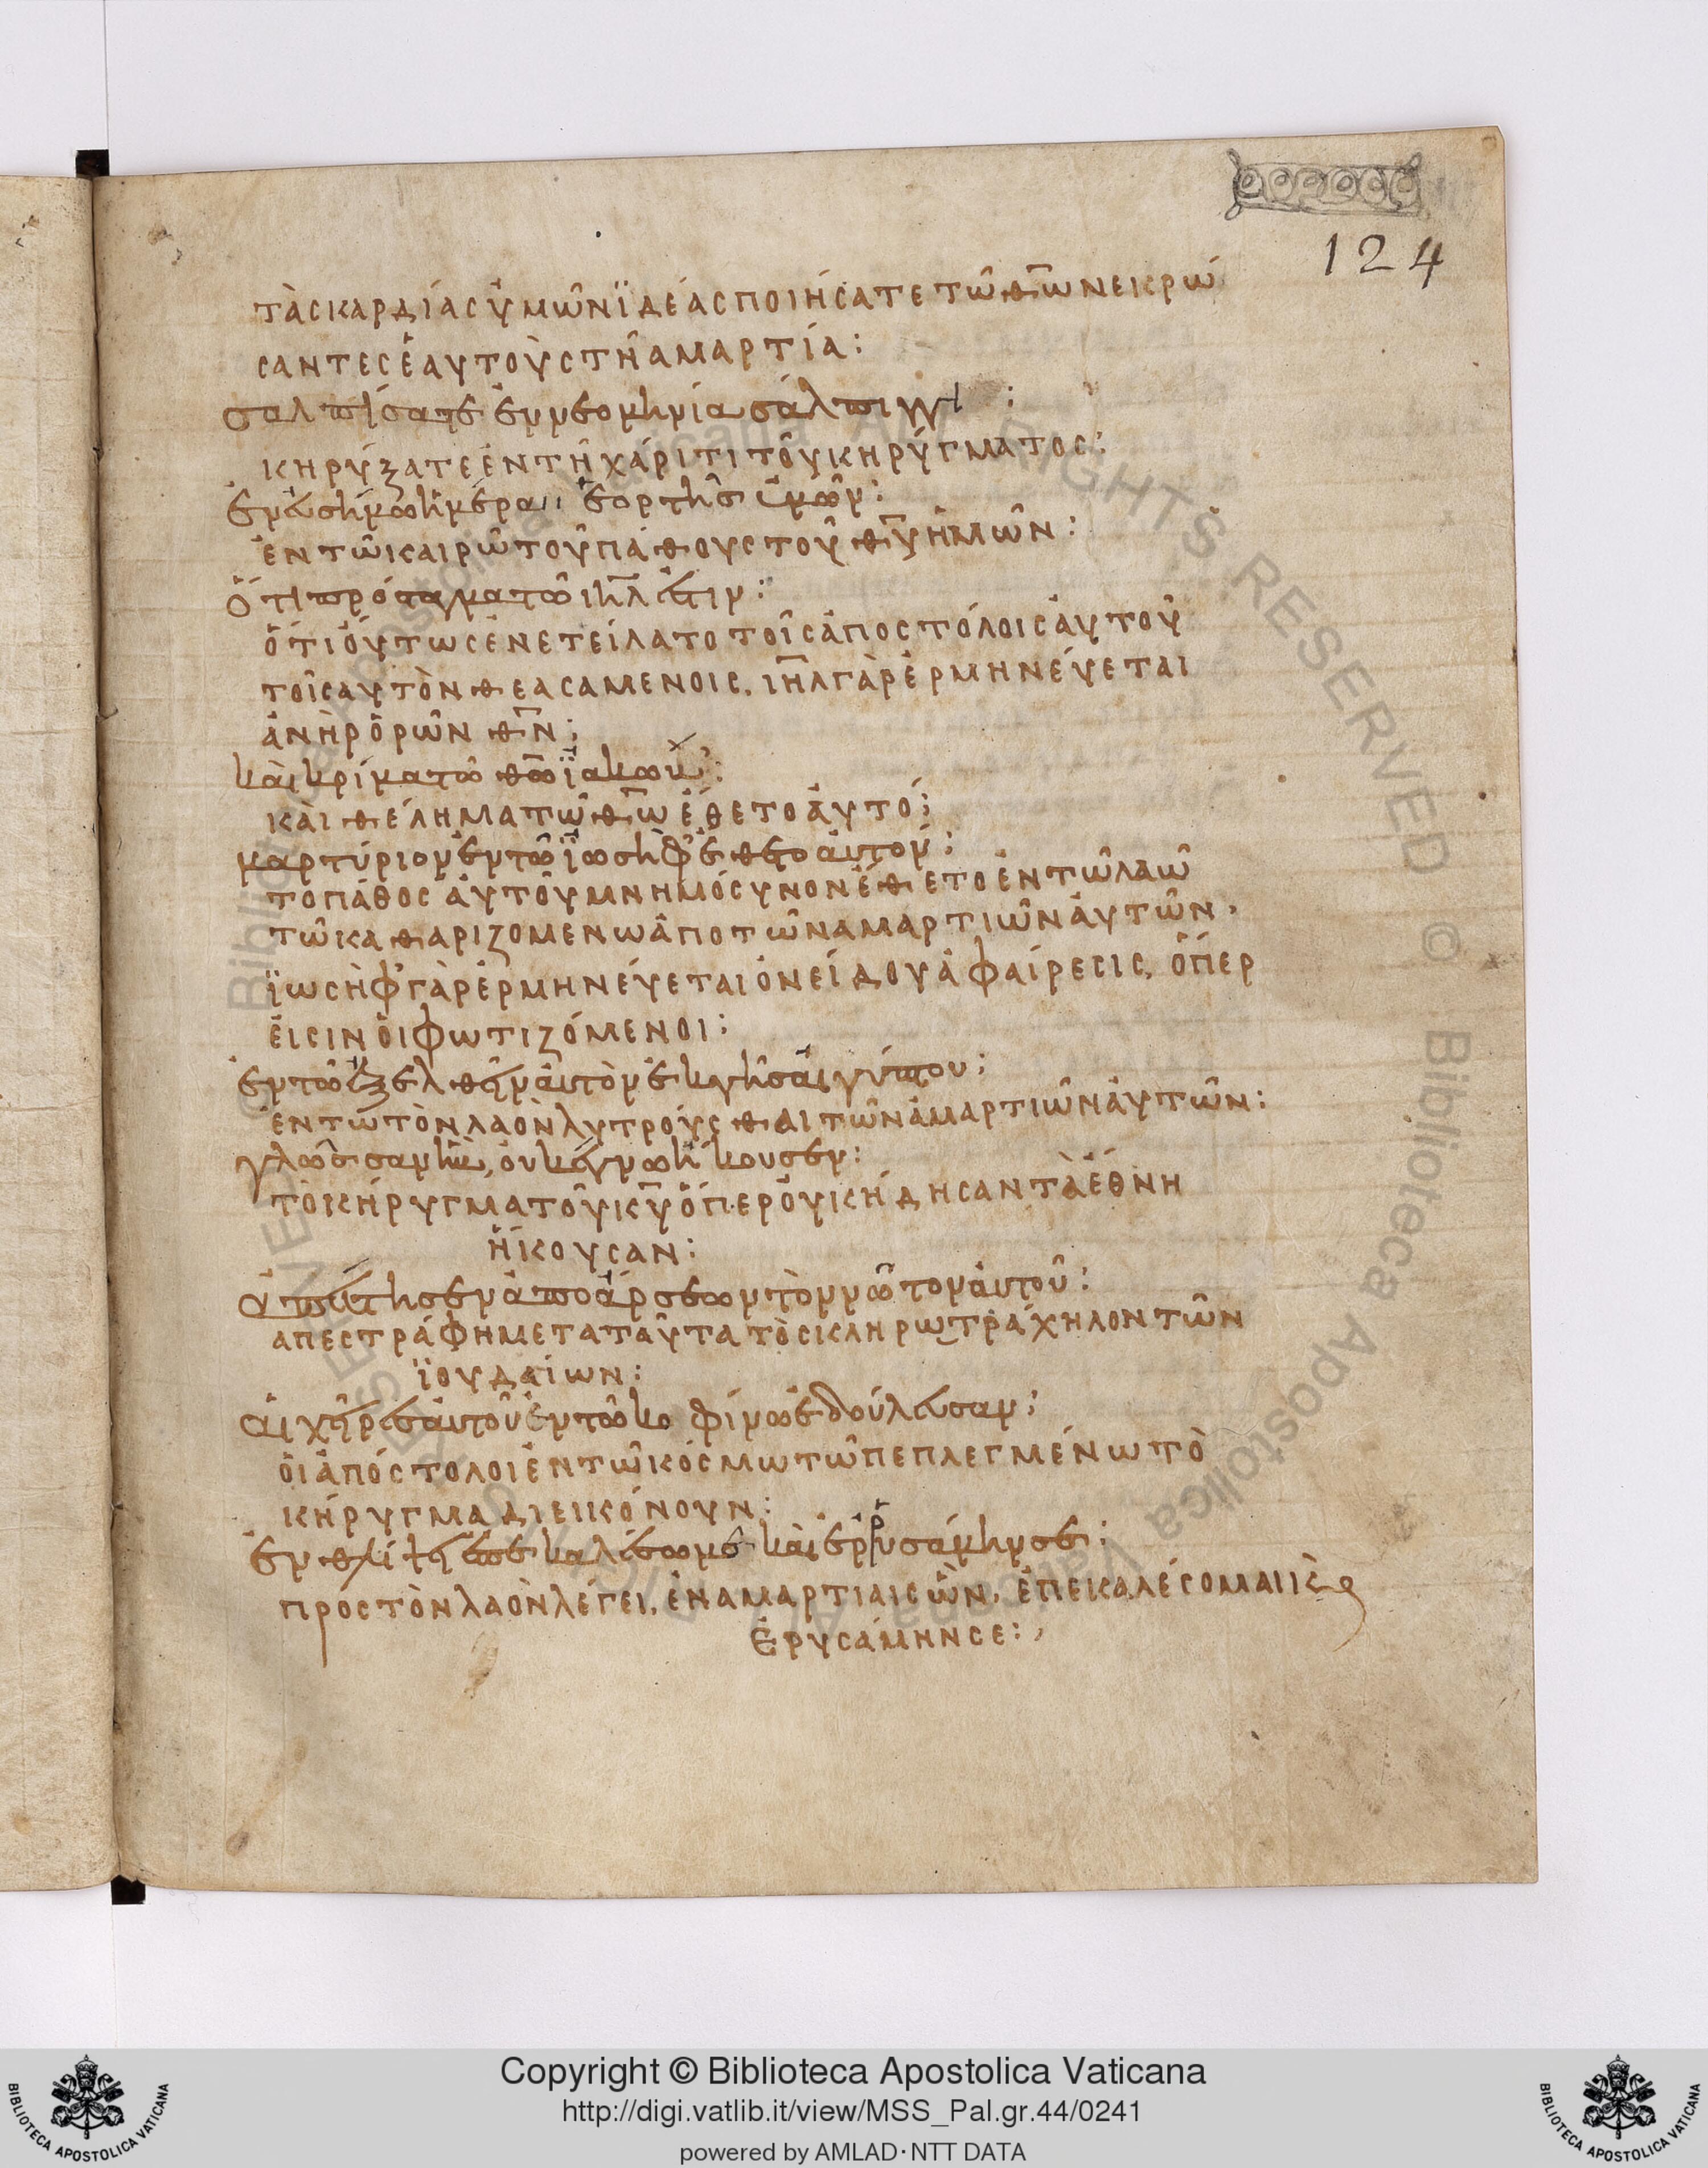 124
τὰς καρδίας ὑμῶν ϊδέας ποιήσατε τῶ θ̅ω̅ νεκρώ
σαντες ἑαυτοὺς τῆ ἁμαρτία:
σαλπίσατε ἐν νεομηνία σάλπιγγι :
κηρύξατε ἐν τῆ χάριτι τοῦ κηρύγματος:
ἐν εὐσήμω ἡμέρα ἑορτῆς ὑμῶν:
ἐν τῶ καιρῶ τοῦ πάθους τοῦ θ̅υ̅ ἡμῶν:
ὅτι πρόσταγμα τῶ ι̅η̅λ̅ ἐστιν:
ὅτι οὕτως ἐνετείλατο τοῖς ἀποστόλοις αὐτοῦ
τοῖς αυτὸν θεασαμενοις, ι̅η̅λ̅ γὰρ ἑρμηνεύεται
ἀνὴρ ὁρῶν θ̅ν̅:
καὶ κρίμα τῶ θ̅ω̅ ϊακώβ:
καὶ θέλημα τῶ θ̅ω̅ ἔθετο αὐτό:
μαρτύριον ἐν τῶ ϊωσὴφ ἔθετο αὐτον:
το πάθος αὐτοῦ μνημόσυνον ἔθετο ἐν τῶ λαῶ
τῶ καθαριζομενω ἀπο τῶν αμαρτιῶν αὐτῶν,
ϊωσὴφ γὰρ ἑρμηνεύεται ὀνείδου ἀφαίρεσις, ὅπερ
εἰσιν οἱ φωτιζόμενοι:
ἐν τῶ ἐξελθεῖν αὐτὸν ἐκ γῆς αἰγύπτου:
ἐν τῶ τὸν λαὸν λυτροῦσθαι τῶν ἁμαρτιῶν αὐτῶν:
γλῶσσαν ἣν, οὐκ ἔγνω ἤκουσεν:
τὸ κήρυγμα τοῦ κ̅υ̅ ὅπερ οὐκ ἤδησαν τὰ ἔθνη
ἤκουσαν:
ἀπέστησεν ἀπο ἄρσεων τὸν νῶτον αὐτοῦ:
απεστράφη μετα ταῦτα τὸ σκληρω τράχηλον τῶν
ϊουδαίων:
αἱ χεῖρες αὐτοῦ ἐν τῶ κοφίνω ἐδούλευσαν:
οἱ ἀπόστολοι ἐν τῶ κόσμω τῶ πεπλεγμένω τὸ
κήρυγμα διεικόνουν:
ἐν θλίψει ἐπεκαλέσω με καὶ ἐρρυσάμην σε:
προς τὸν λαὸν λέγει, ἐν αμαρτιαις ὢν, ἐπεικαλέσομαι κς
ἐρυσάμην σε:
Copyright © Biblioteca Apostolica Vaticana
http://digi.vatlib.it/view/MSS_Pal.gr.44/0241
powered by AMLAD·NTT DATA
BIBLIOTECA APOSTOLICA VATICANA
BIBLIOTECA APOSTOLICA VATICANA